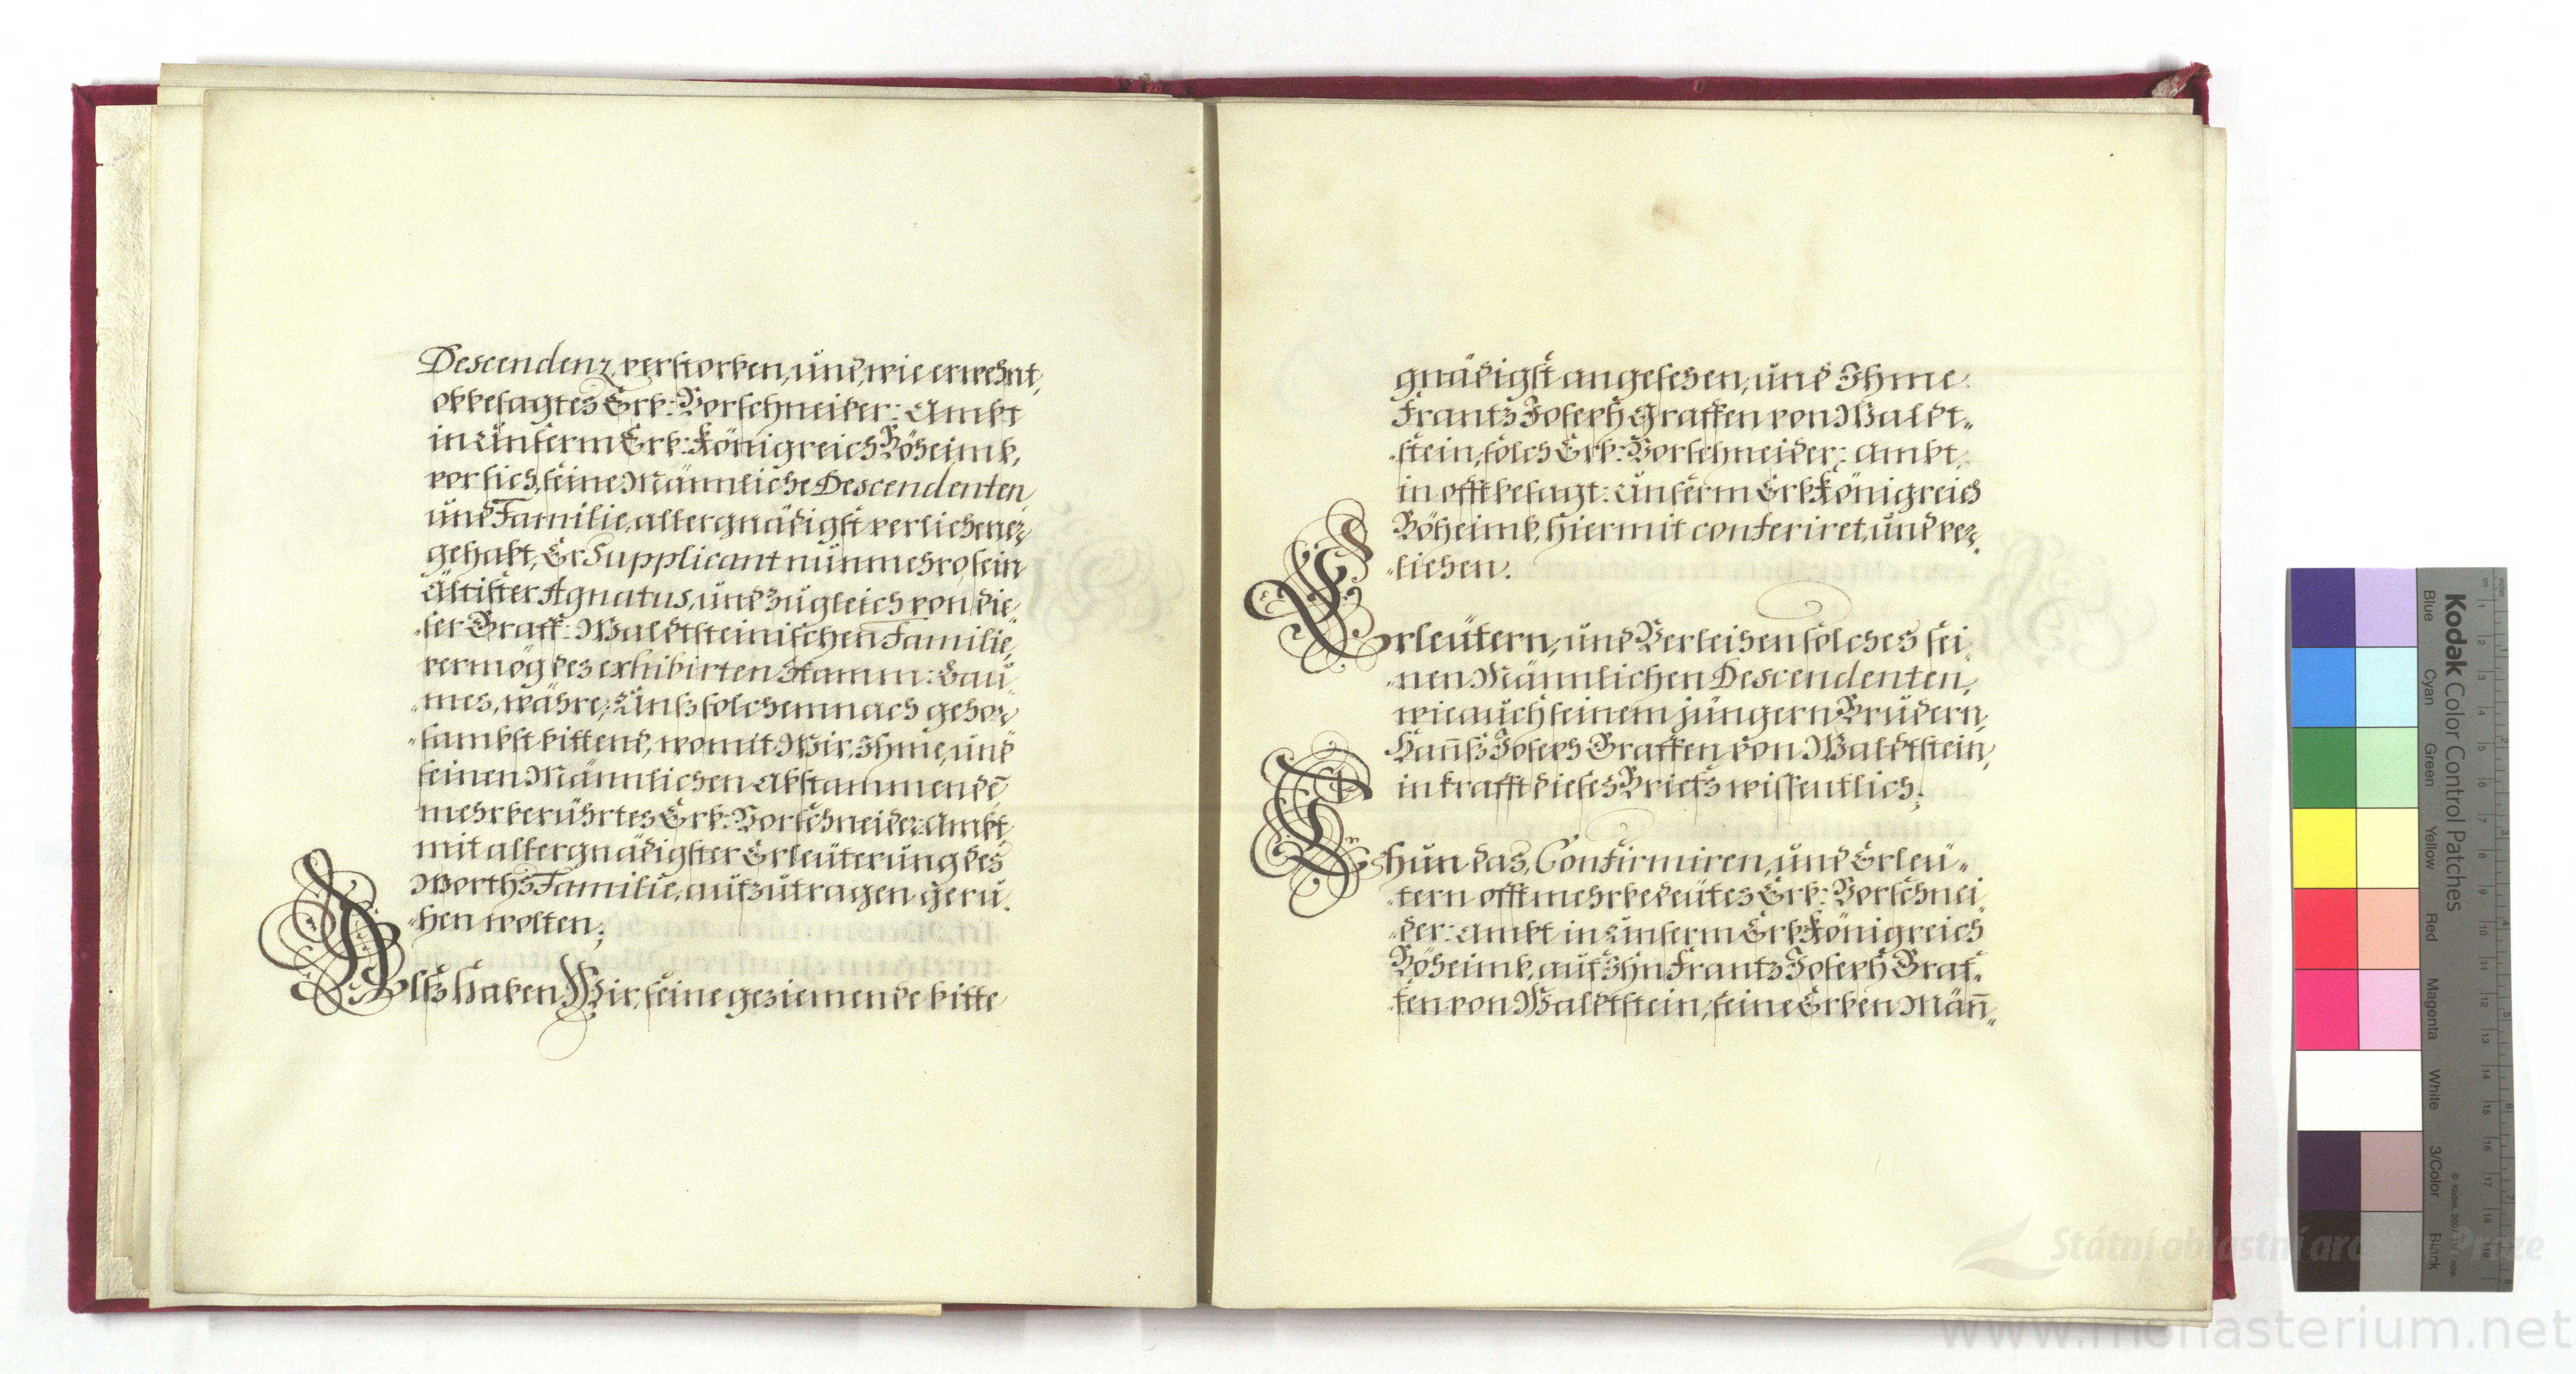 Descendenz verstorben, und, wie erwehnt,
obbesagtes Erb: Vorschneider: Ambt
in Unserm Erb: Königreich Böheimb,
vor sich, seine Männliche Descendenten,
und Familie, allergnädigst verliehener
gehabt, Er Supplicant nunmehro sein
Ältister Agnatus, und zugleich von die„
„ser Graff: Waldtsteinischen Familie,
vermög des exhibirten Stamm: Bau„
„mes, währe, Unß solchemnach gehor„
„sambst bittend, womit Wir, Ihme, und
seinen Männlichen Abstammendē
mehrberührtes Erb: Vorschneider: Ambt
mit allergnädigster Erleüterung des
Worths Familie, aufzutragen geru„
„hen wolten;
Alß haben Wir, seine geziemende bitte
gnädigst angesehen, und Ihme
Frantz Joseph Graffen von Waldt„
„stein, solch Erb: Vorschneider: Ambt,
in offtbesagt: Unserm Erb Königreich
Böheimb, hiermit conferiret, und ver„
„liehen.
Erleütern, und Verleihen solches sei„
„nen Männlichen Descendenten,
wie auch seinem jüngern Brudern,
Hannß Joseph Graffen von Waldtstein,
in krafft dieses Briefs wissentlich;
Thun das, Confirmiren, und Erleü„
„tern offtmehrbedeütes Erb: Vorschnei„
„der: Ambt in Unserm Erb Königreich
Böheimb, auf Ihn Frantz Joseph Graf„
„fen von Waldtstein, seine Erben Män̄„
Kodak Color Control Patches
Blue Cyan Green Yellow Red Magenta White 3/Color Black
Státní oblastní archiv v Praze
www.monasterium.net